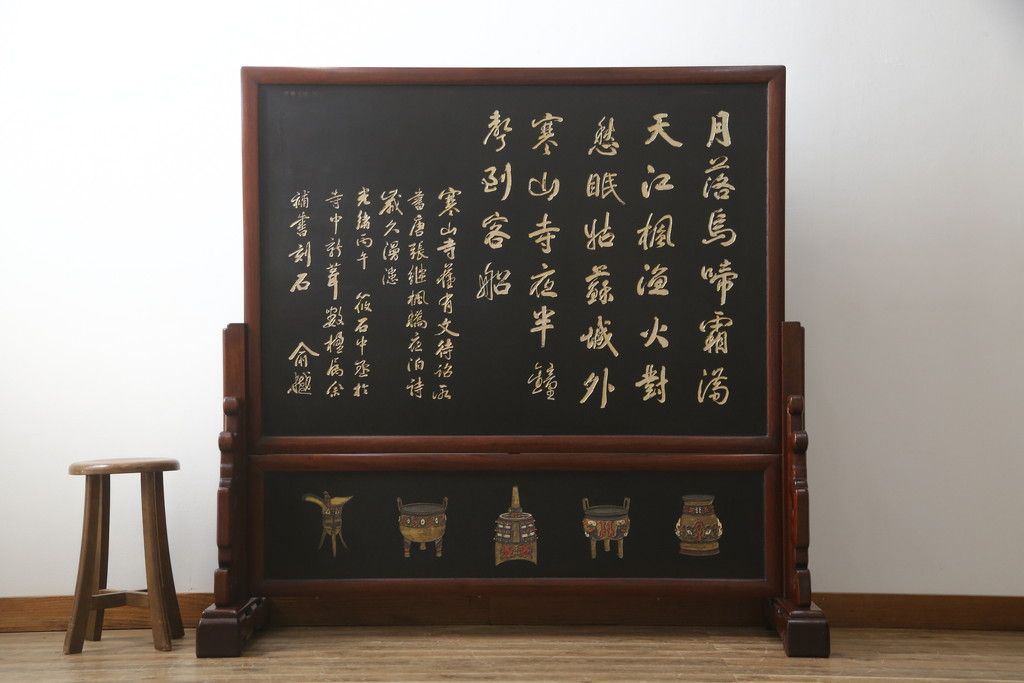 月落烏啼霜满
天江楓漁火對
愁眠姑蘇城外
寒山寺夜半鐘
聲到客船
寒山寺舊有文待詔所
書唐張繼楓橋夜泊詩
歲久漫漶
光緒丙午 筱石中丞於
寺中新葺數楹属余
補書刻石 俞樾